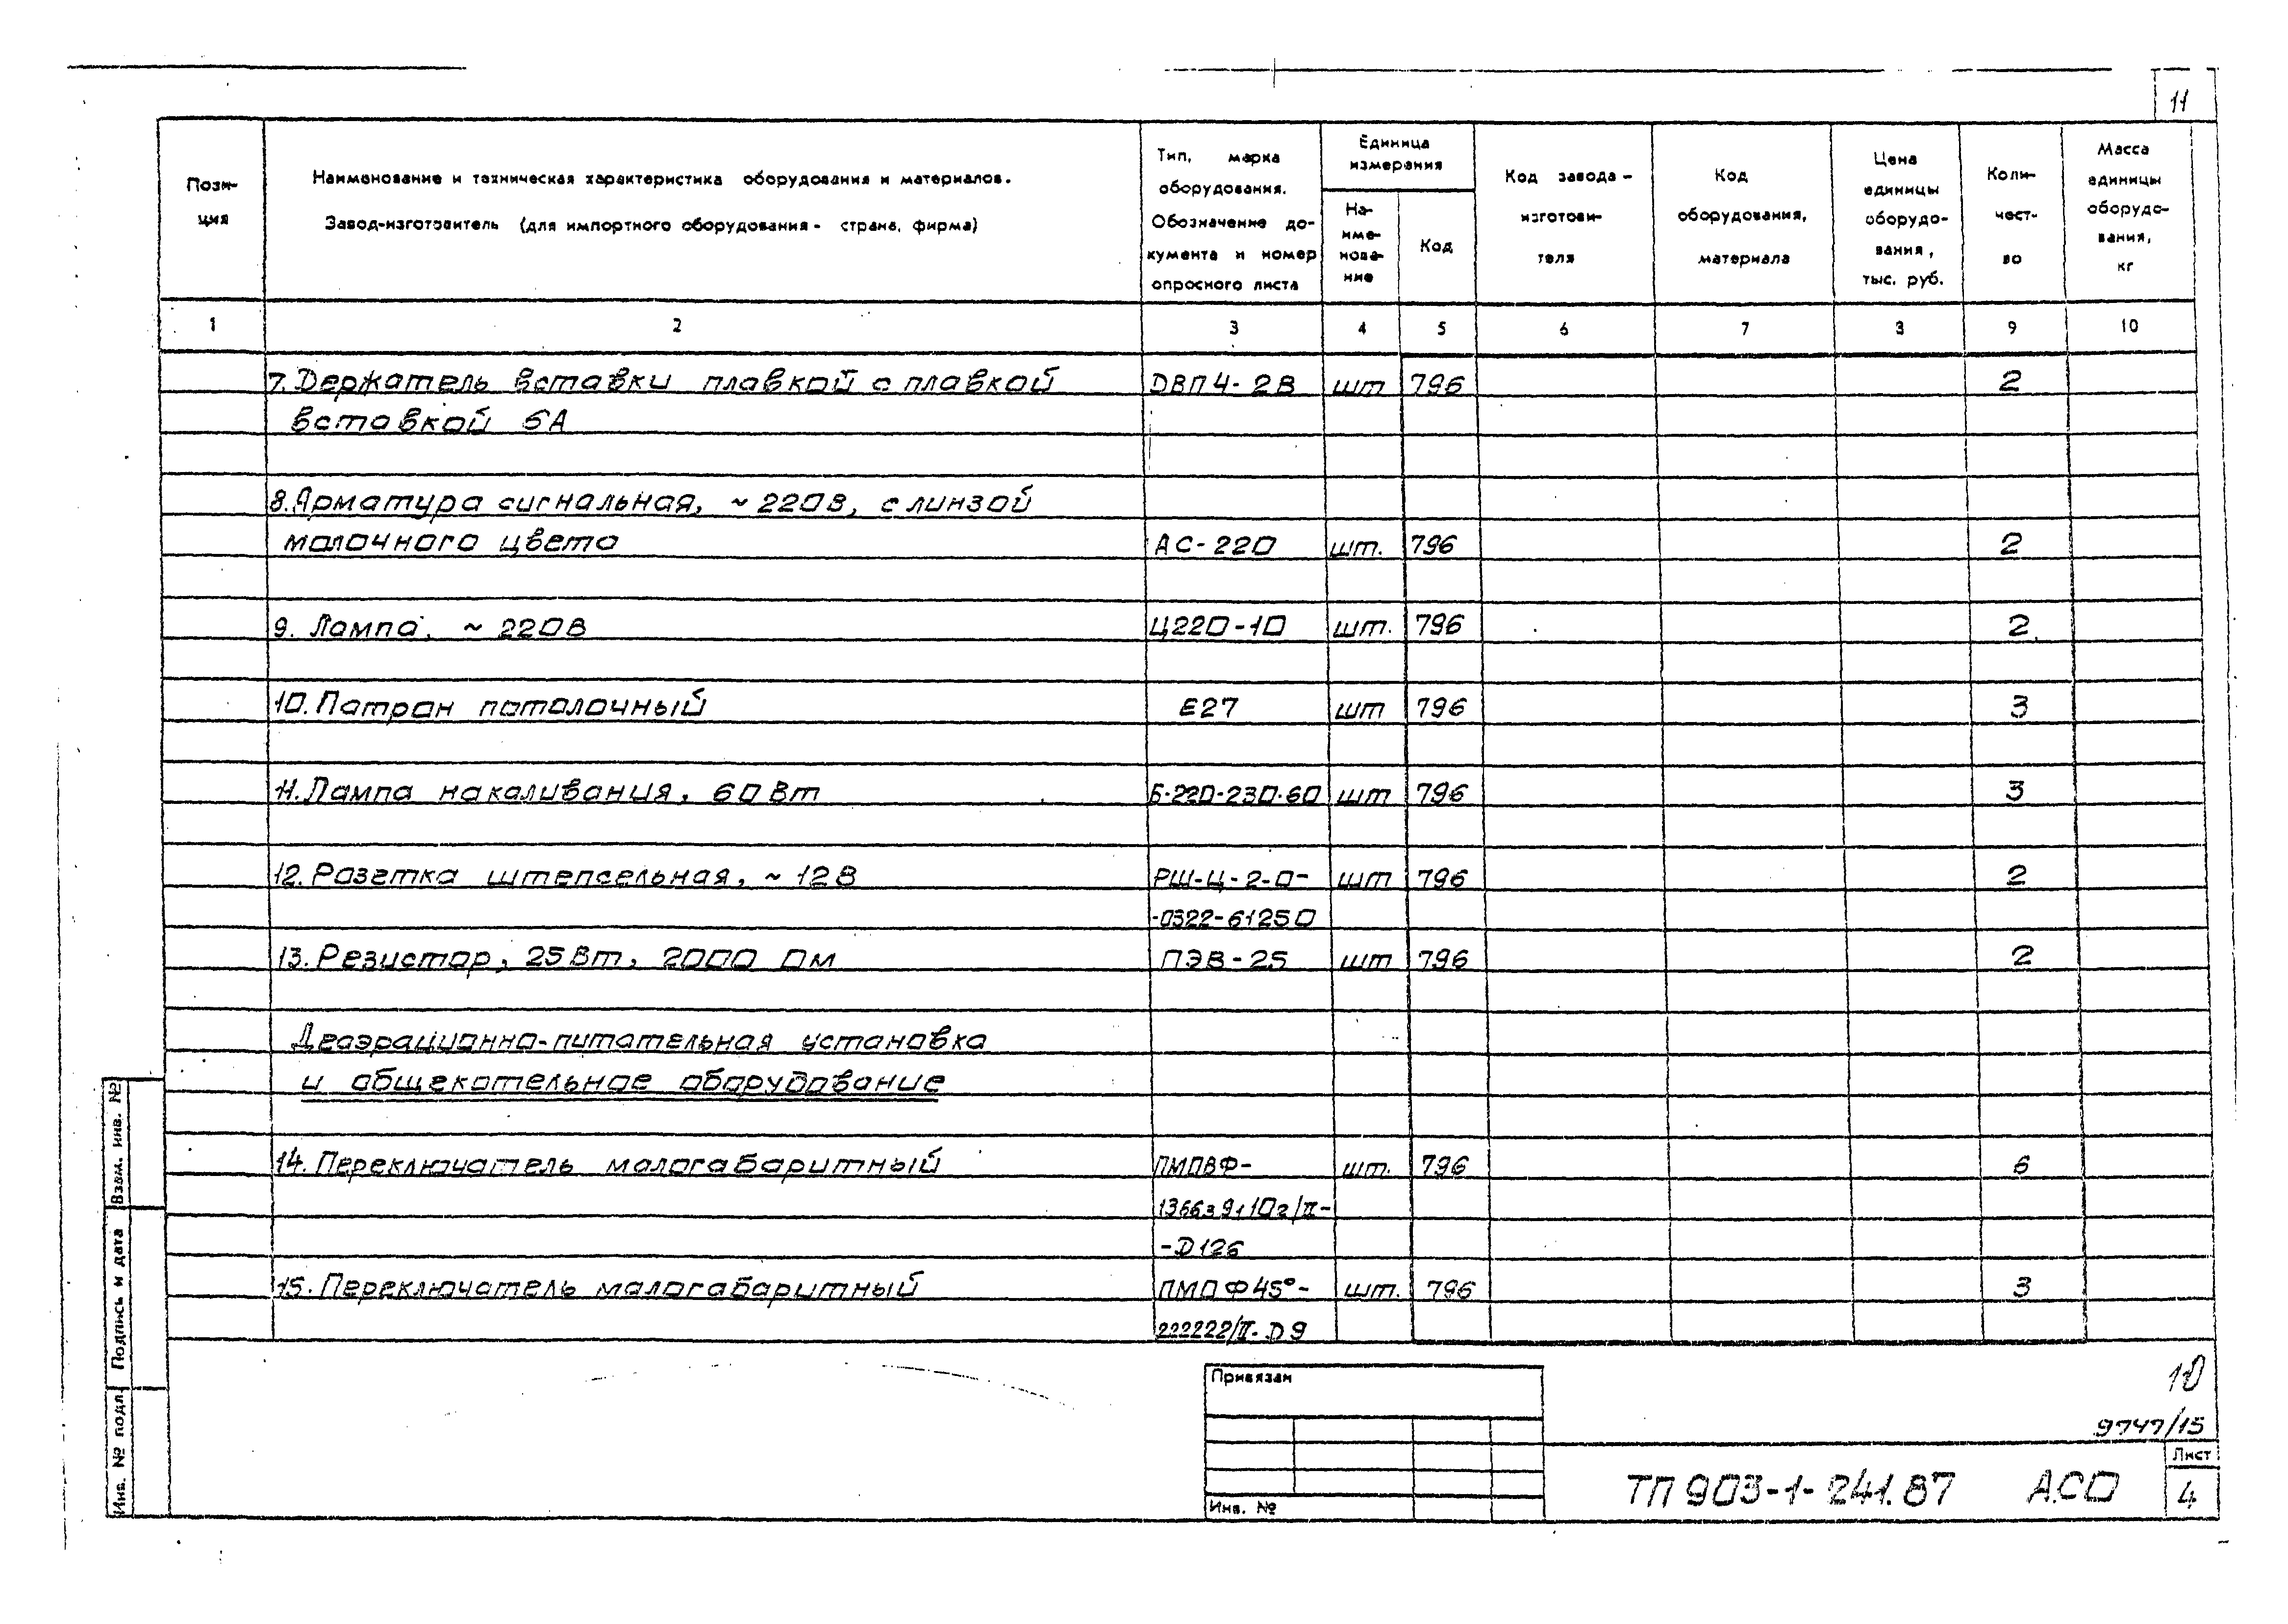 11
Пози-
ция
Наименование и техническая характеристика оборудования и материалов.
Завод-изготовитель (для импортного оборудования - страна, фирма)
Тип, марка
оборудования.
Обозначение до-
кумента и номер
опросного листа
Единица
измерения
На-
име-
нова-
ние
Код
Код завода -
изготови-
теля
Код
оборудования,
материала
Цена
единицы
оборудо-
вания,
тыс. руб.
Коли-
чест-
во
Масса
единицы
оборудо-
вания,
кг
1 2 3 4 5 6 7 8 9 10
7. Держатель вставки плавкой с плавкой ДВП4-2В шт 796 2
вставкой 6А
8. Арматура сигнальная, ~ 220В, с линзой
молочного цвета АС-220 шт. 796 2
9. Лампа, ~ 220В Ц220-10 шт. 796 2
10. Патрон потолочный Е27 шт 796 3
11. Лампа накаливания, 60 Вт Б-220-230-60 шт 796 3
12. Розетка штепсельная, ~ 12В РШ-Ц-2-0- шт 796 2
-0322-61250
13. Резистор, 25Вт, 2000 Ом ПЭВ-25 шт 796 2
Деаэрационно-питательная установка
и общекотельное оборудование
14. Переключатель малогабаритный ПМПВФ- шт. 796 6
-D126
15. Переключатель малогабаритный ПМПФ45°- шт. 796 3
222222/II-D9
Взам. инв. №
Подпись и дата
Инв. № подл
Привязан
Инв. №
10
9747/15
ТП 903-1-241.87 АСО
Лист
4